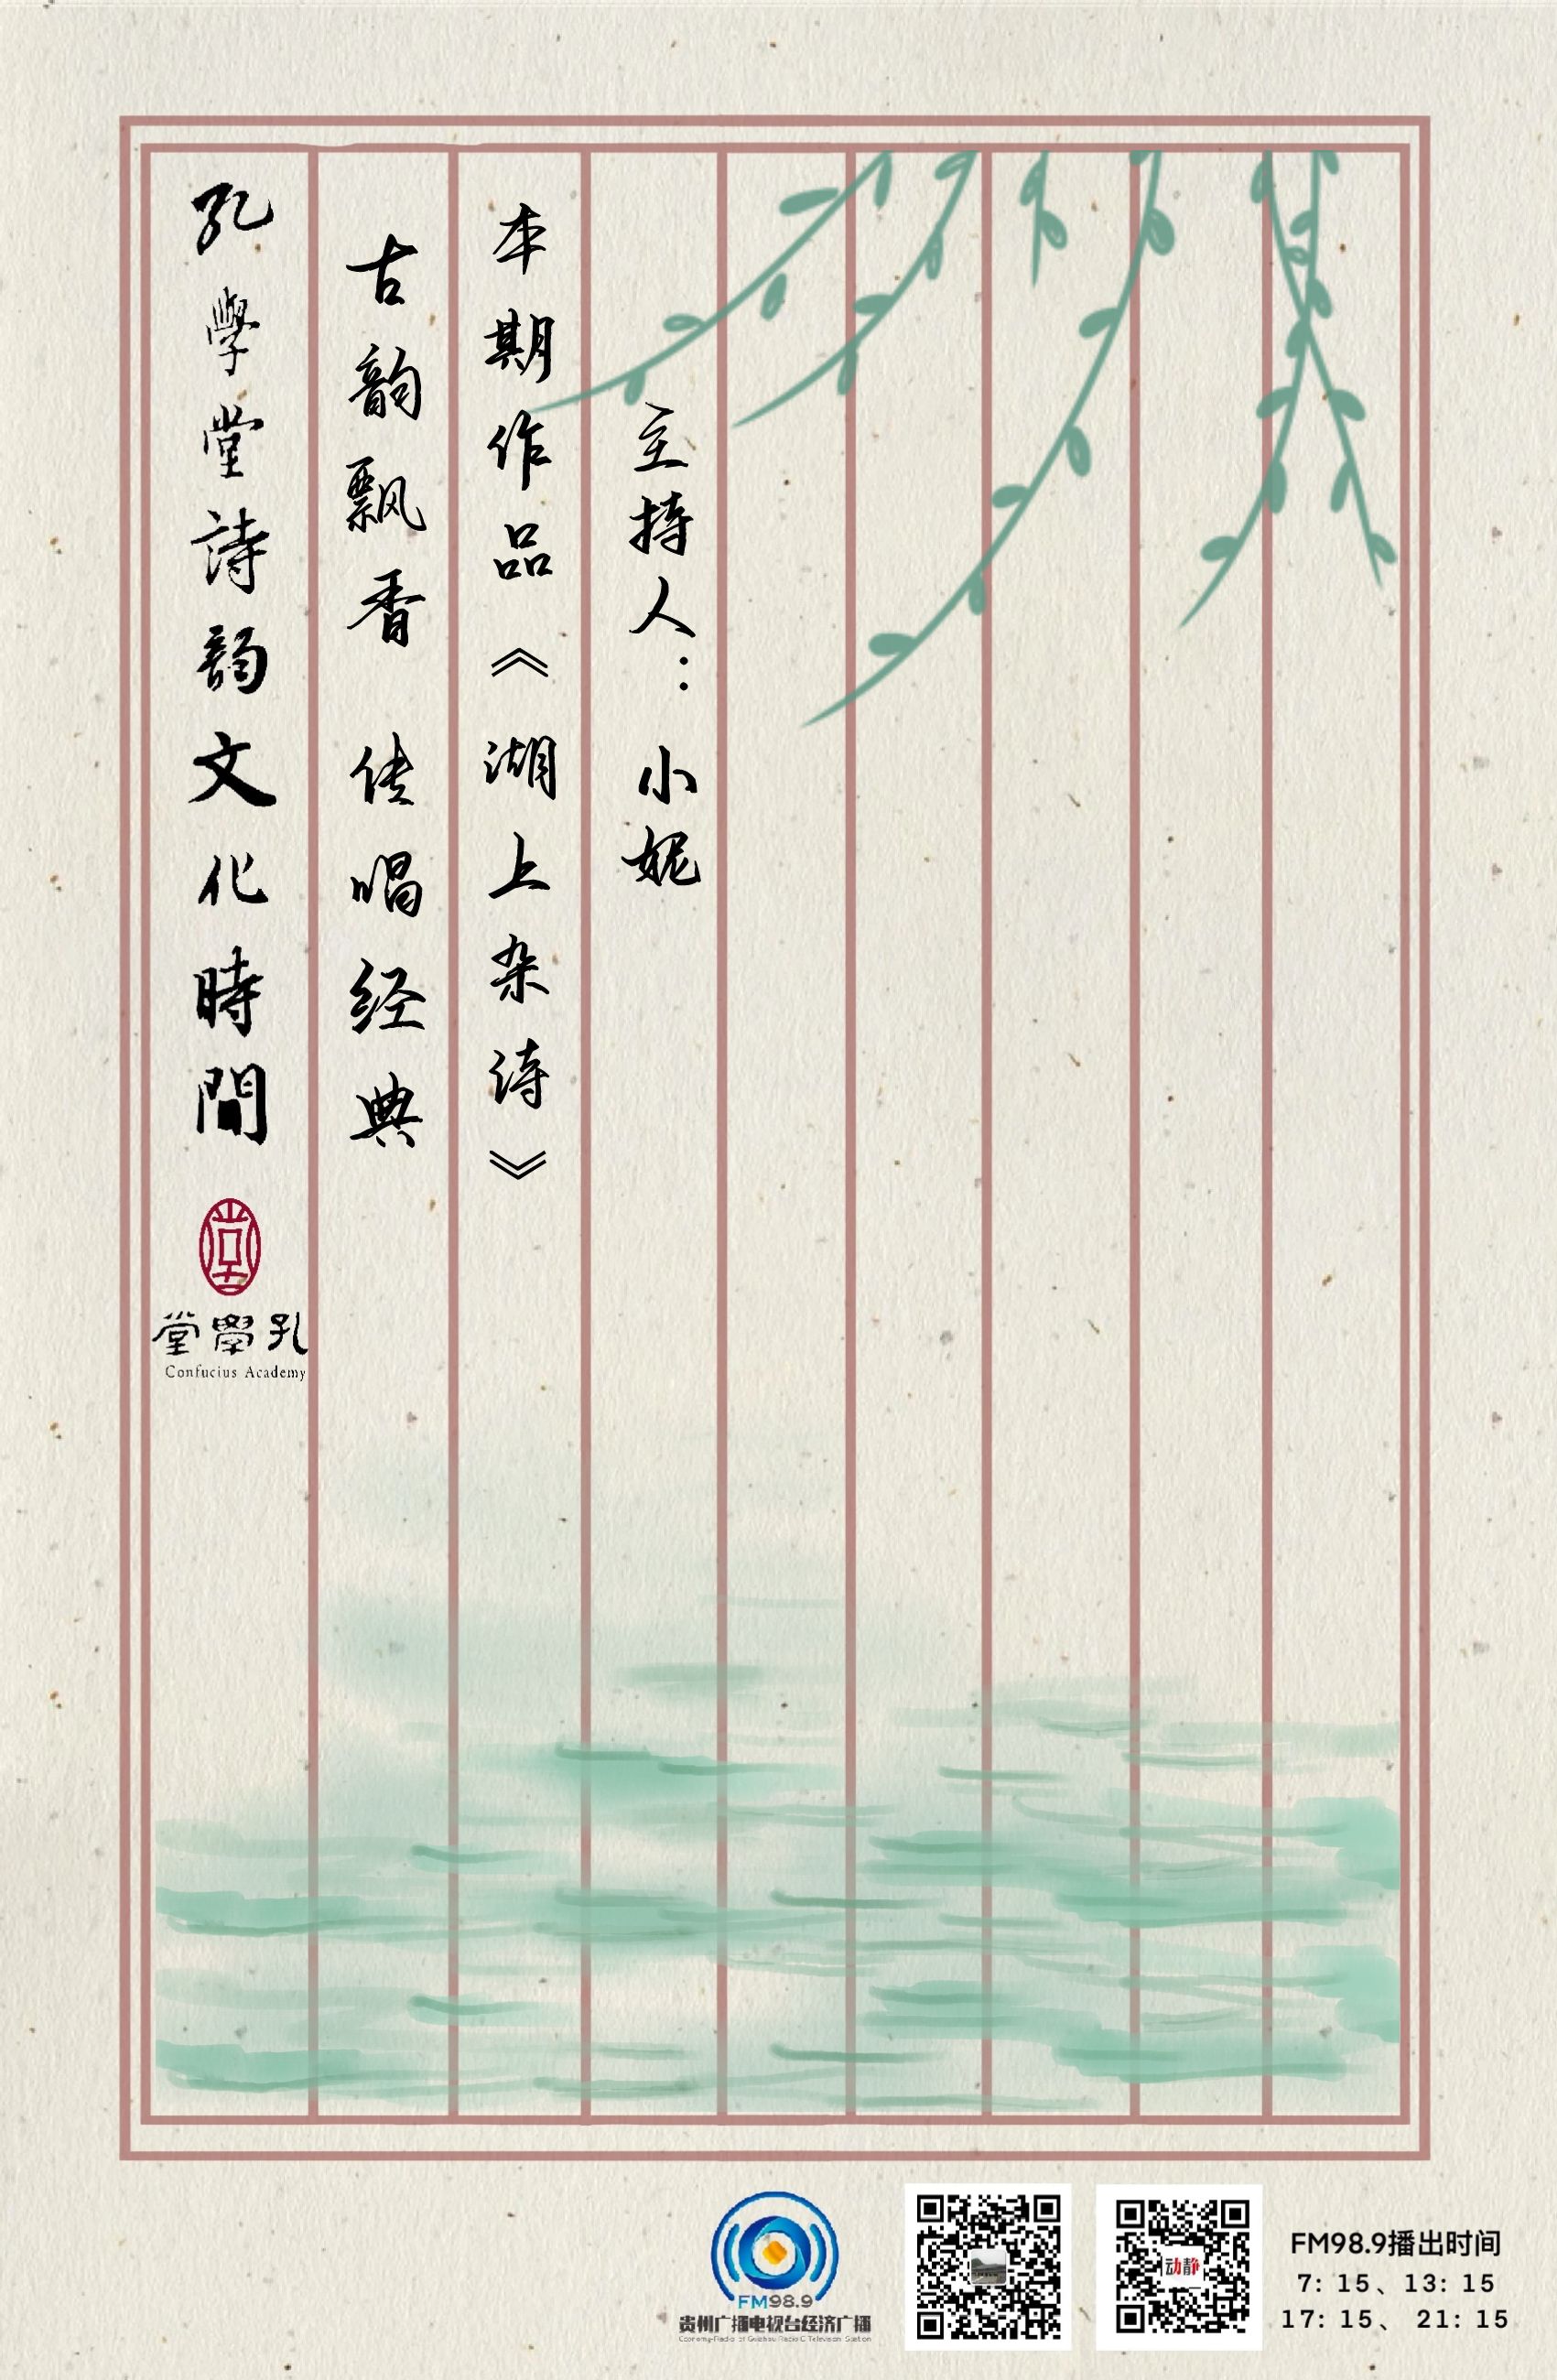 孔學堂詩韵文化時間
古韵飘香 传唱经典
本期作品《湖上杂诗》
主持人：小妮
堂學孔
Confucius Academy
FM98.9
贵州广播电视台经济广播
Economy-Radio of Guizhou Radio & Television Station
动静
FM98.9播出时间
7: 15、13: 15
17: 15、 21: 15